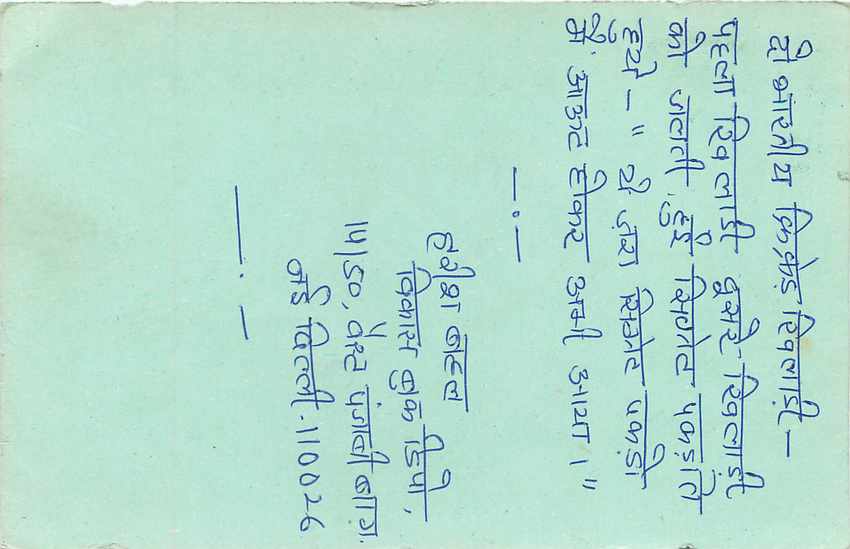 दो भारतीय क्रिकेट खिलाड़ी —
पहला खिलाड़ी दूसरे खिलाड़ी
को जलती हुई सिगरेट पकड़ाते
हुये — " ये ज़रा सिगरेट पकड़ो
मैं आऊट होकर अभी आया । "
— . —
हरीश बादल
विकास बुक डिपो,
14/50, वेस्ट पंजाबी बाग़.
नई दिल्ली - 110026
— . —